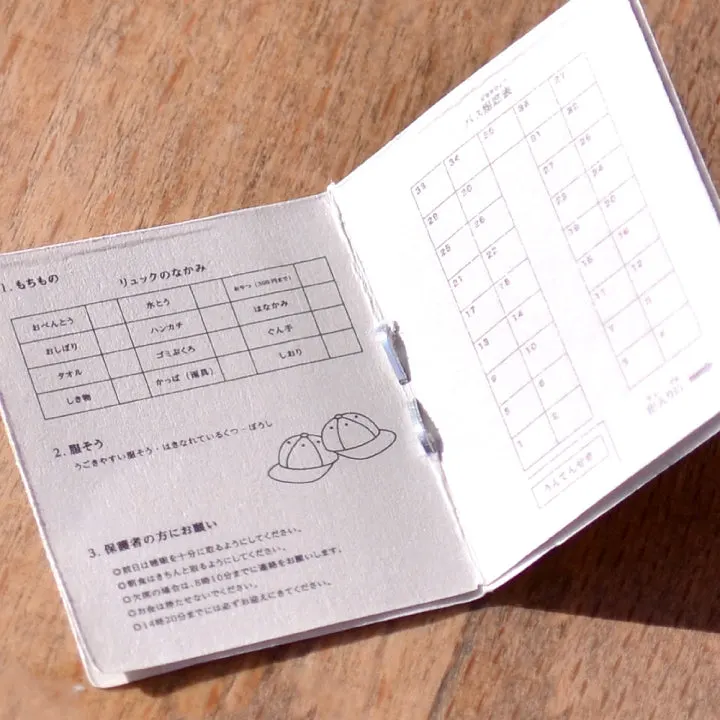 1. もちもの
リュックのなかみ
おべんとう 水とう おやつ（300円まで）
おしぼり ハンカチ はなかみ
タオル ゴミぶくろ ぐん手
しき物 かっぱ（雨具） しおり
2. 服そう
うごきやすい服そう・はきなれているくつ・ぼうし
3. 保護者の方にお願い
◎前日は睡眠を十分に取るようにしてください。
◎朝食はきちんと取るようにしてください。
◎欠席の場合は、8時10分までに連絡をお願いします。
◎お金は持たせないでください。
◎14時20分までには必ずお迎えにきてください。
バス座席表
33 34 35
29 30 31
25 26 27
21 22 23 24
17 18 19 20
13 14
9 10
5 6
1 2
うんてんせき